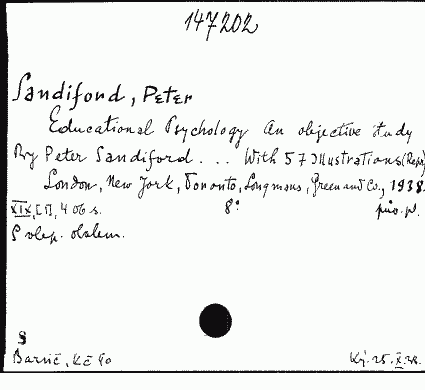 147202
Sandiford, Peter
Educational Psychology An objective study
By Peter Sandiford... With 57 Illustrations (Repr)
London, New York, Toronto, Longmans, Green and Co., 1938.
XIX, [1], 406 s. 8° pův. pl.
S olep. obalem.
S
Barvič, Kč 90 Kj. 25. X. 38.